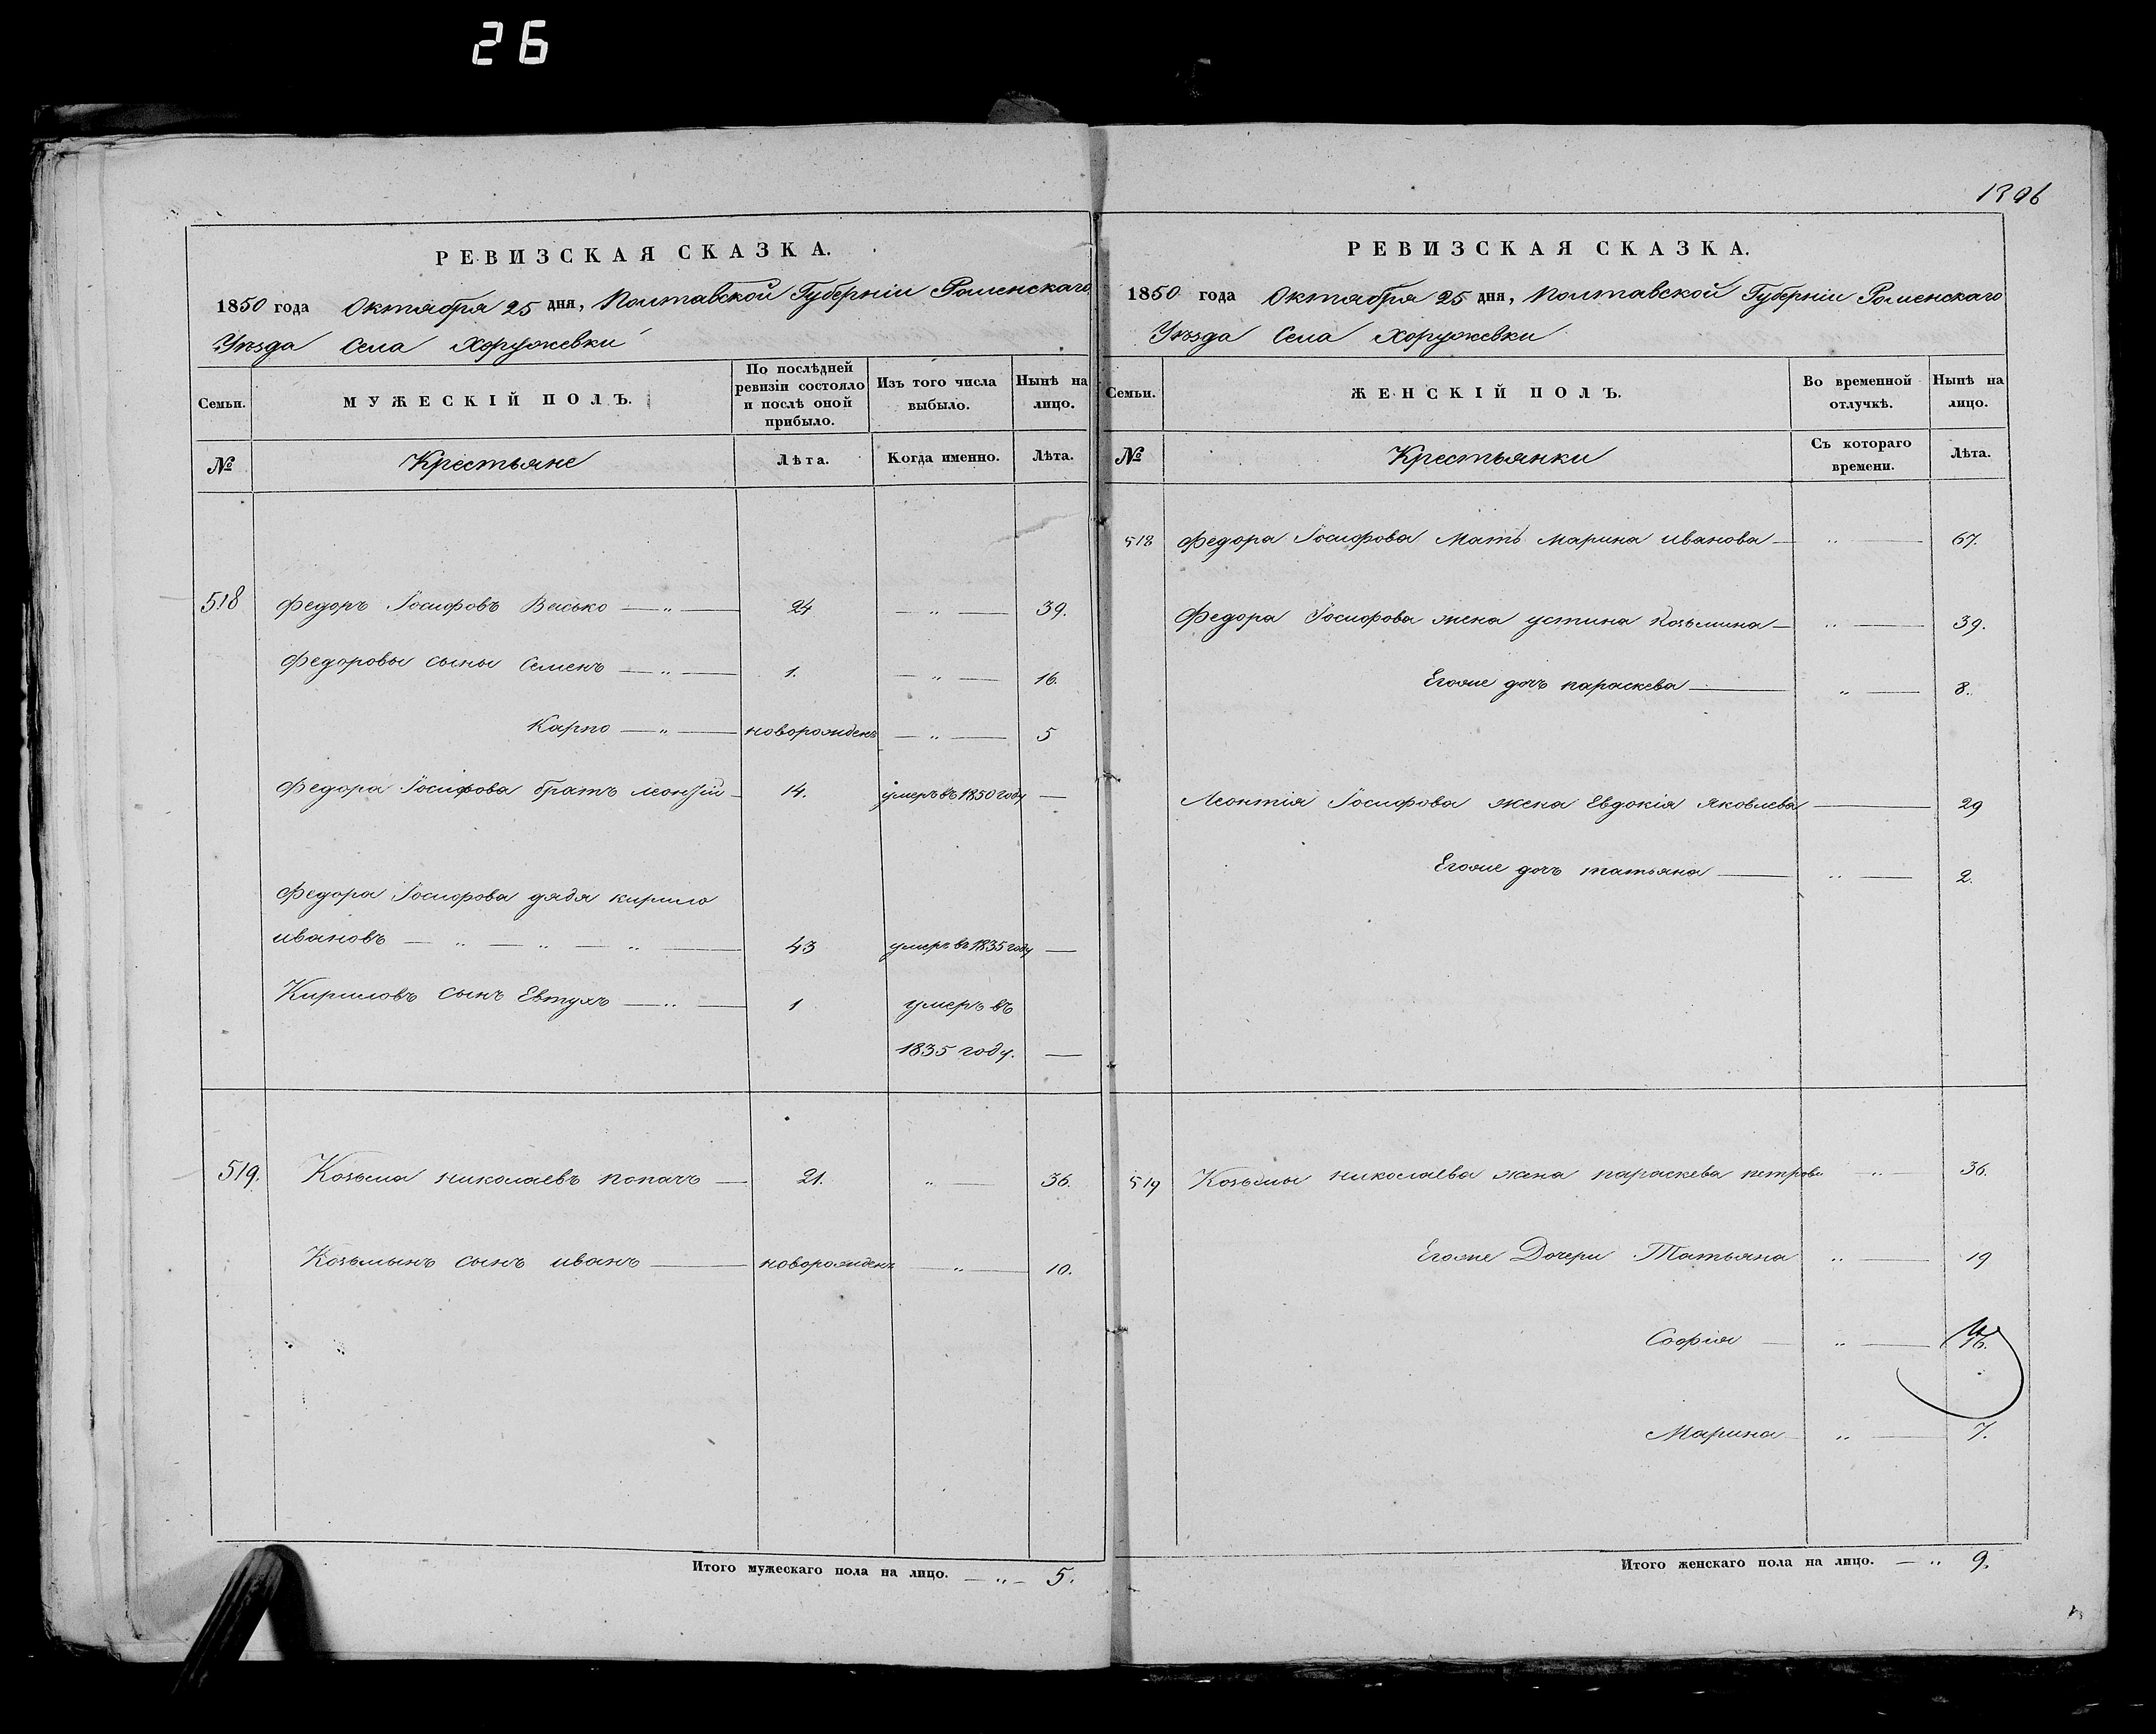 26
1396
РЕВИЗСКАЯ СКАЗКА.
1850 года Октября 25 дня, Полтавской Губерніи Роменскаго
Уѣзда Села Хоружевки
Семьи. МУЖЕСКІЙ ПОЛЪ. По послѣдней ревизіи состояло и послѣ оной прибыло. Изъ того числа выбыло. Нынѣ на лицо.
№ Крестьяне Лѣта. Когда именно. Лѣта.
518 Федоръ Іосифовъ Висько — „ — 24 — „ — 39.
Федоровы сыны Семенъ — „ — 1. — „ — 16.
Карпо — „ — новорожденъ — „ — 5
Федора Іосифова братъ леонтій — 14. умеръ въ 1850 году —
Федора Іосифова дядя кирило
ивановъ — „ — „ — „ — 43 умеръ въ 1835 году —
Кириловъ сынъ Евтухъ — „ — 1 умеръ въ
1835 году. —
519. Козьма николаевъ попачъ — 21. „ — 36.
Козьмынъ сынъ иванъ — новорожденъ — „ — 10.
Итого мужескаго пола на лицо. — „ — 5.
РЕВИЗСКАЯ СКАЗКА.
1850 года Октября 25 дня, Полтавской Губерніи Роменскаго
Уѣзда Села Хоружевки
Семьи. ЖЕНСКІЙ ПОЛЪ. Во временной отлучкѣ. Нынѣ на лицо.
№ Крестьянки Съ котораго времени. Лѣта.
518 Федора Іосифова Мать марина иванова — „ — 67.
Федора Іосифова жена устина козьмина — „ — 39.
Егоже дочъ параскева — „ — 8.
Леонтія Іосифова жена Евдокія яковлева — 29
Егоже дочъ татьяна — „ — 2.
519 Козьмы николаева жена параскева петрова „ 36.
Егоже Дочери Татьяна „ — 19
Софія — „ — 16.
Марина „ — 7.
Итого женскаго пола на лицо. — „ 9.